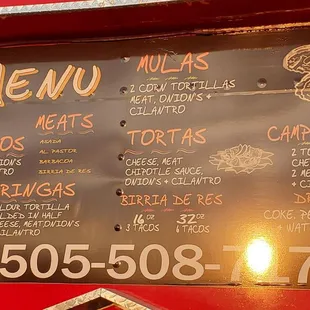 MENU
MEATS
ASADA
AL PASTOR
BARBACOA
BIRRIA DE RES
OS
ONION'S
CILANTRO
RINGAS
LOUR TORTILLA
LDED IN HALF
EESE, MEAT, ONION'S
ILANTRO
MULAS
2 CORN TORTILLAS
MEAT, ONION'S +
CILANTRO
TORTAS
CHEESE, MEAT
CHIPOTLE SAUCE,
ONION'S + CILANTRO
BIRRIA DE RES
16 OZ 32 OZ
3 TACOS 4 TACOS
CAMP
2 T
CHE
2 ME
+ CI
D
COKE, PE
+ WAT
505-508-7